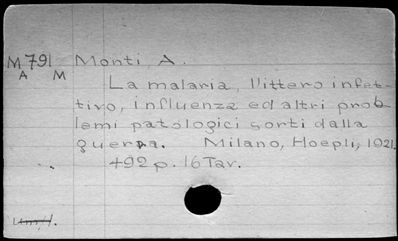 M 791 Monti, A.
A M
La malaria, l'ittero infet-
tivo, influenza ed altri prob
lemi patologici sorti dalla
guerra. Milano, Hoepli, 1921.
492 p. 16 Tav.